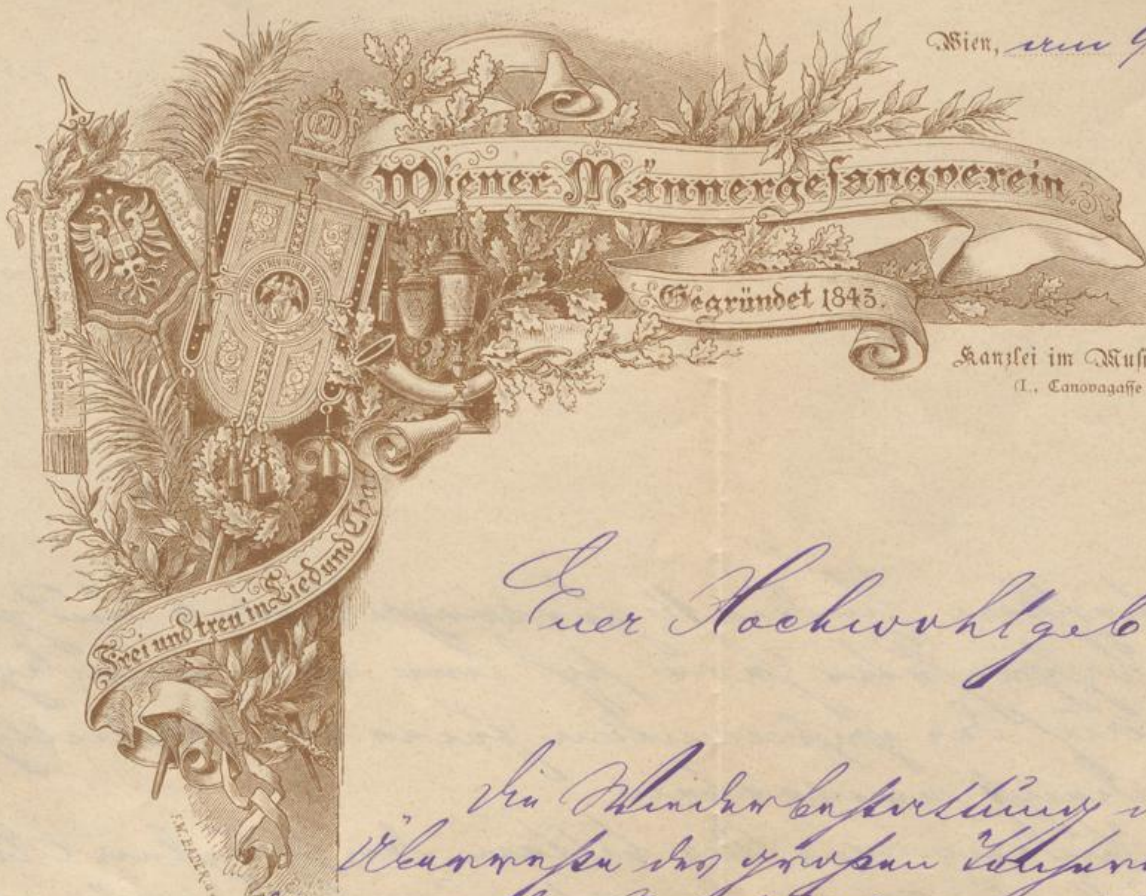 Wien, am 9
Wiener Männergesangverein.
Gegründet 1843.
Kanzlei im Musi
(I., Canovagasse
Frei und treu in Lied und That
Euer Hochwohlgeb
Die Wiederbestattung
Überreste des großen